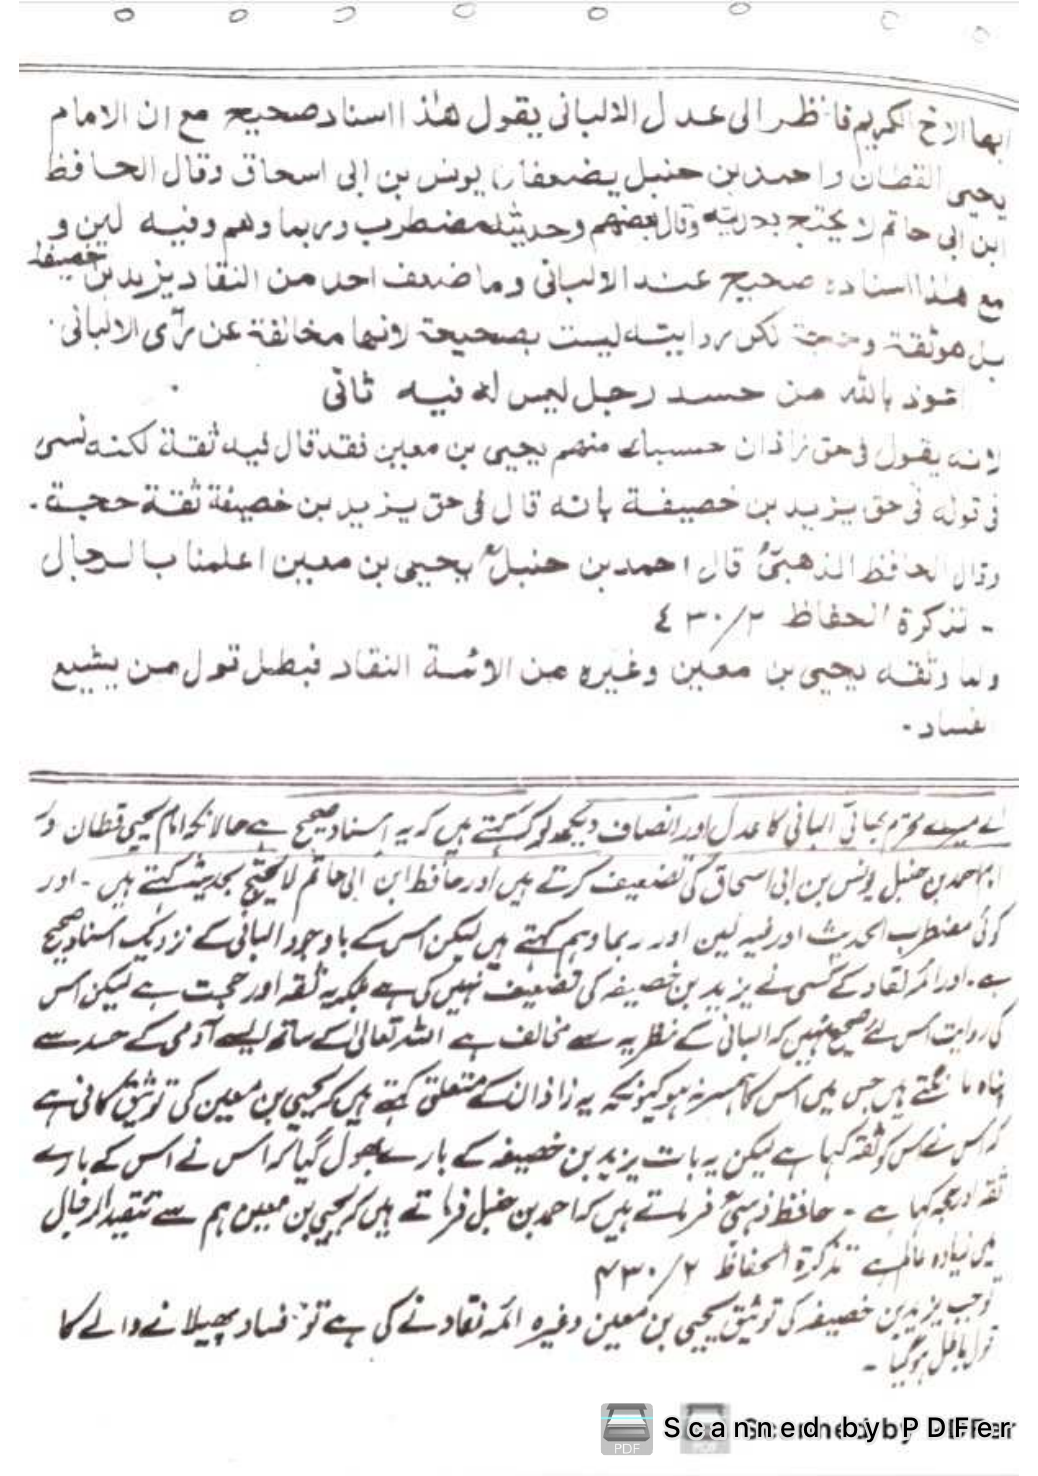 ايها الاخ الكريم فانظر الى عدل الالبانى يقول هٰذا اسناد صحيح مع ان الامام
يحيى القطان واحمد بن حنبل يضعفان يونس بن ابى اسحاق وقال الحافظ
ابن ابى حاتم لا يحتج بحديثه وقال بعضهم وحديثه مضطرب وربما وهم وفيه لين و
مع هٰذا اسناده صحيح عند الالبانى وما ضعف احد من النقاد يزيد بن خصيفة
بل هو ثقة وحجة لكن روايته ليست بصحيحة لانها مخالفة عن رأى الالبانى.
اعوذ بالله من حسد رجل ليس له فيه ثانى
لانه يقول فى حق زاذان حسبك منهم يحيى بن معين فقد قال فيه ثقة لكنه نسى
فى قوله فى حق يزيد بن خصيفة بانه قال فى حق يزيد بن خصيفة ثقة حجة.
وقال الحافظ الذهبىؒ قال احمد بن حنبلؒ يحيى بن معين اعلمنا بالرجال
- تذكرة الحفاظ ٢/٤٣٠
ولما وثقه يحيى بن معين وغيره من الائمة النقاد فبطل قول من يشيع
فساد -
اے میرے محترم بھائی البانی کا عدل اور انصاف دیکھو کہ کہتے ہیں کہ یہ اسناد صحیح ہے حالانکہ امام یحیی قطان و
امام احمد بن حنبل یونس بن ابی اسحاق کی تضعیف کرتے ہیں اور حافظ ابن ابی حاتم لا یحتج بحدیثہ کہتے ہیں - اور
کوئی مضطرب الحدیث اور فیہ لین اور ربما وہم کہتے ہیں لیکن اس کے باوجود البانی کے نزدیک اسناد صحیح
ہے۔ اور ائمہ نقاد کے کسی نے یزید بن خصیفہ کی تضعیف نہیں کی ہے بلکہ یہ ثقہ اور حجت ہے لیکن اس
کی روایت اس لئے صحیح نہیں کہ البانی کے نظریہ سے مخالف ہے اللہ تعالیٰ کے ساتھ ایسے آدمی کے حسد سے
پناہ مانگتے ہیں جس میں اس کا ہمسر نہ ہو کیونکہ یہ زاذان کے متعلق کہتے ہیں کہ یحیی بن معین کی توثیق کافی ہے
کہ اس نے اس کو ثقہ کہا ہے لیکن یہ بات یزید بن خصیفہ کے بارے بھول گیا کہ اس نے اس کے بارے
ثقہ اور حجہ کہا ہے - حافظ ذہبیؒ فرماتے ہیں کہ احمد بن حنبل فرماتے ہیں کہ یحیی بن معین ہم سے تنقید الرجال
میں زیادہ عالم ہے تذکرۃ الحفاظ ۲/۴۳۰
توجب یزید بن خصیفہ کی توثیق یحیی بن معین وغیرہ ائمہ نقاد نے کی ہے تو فساد پھیلانے والے کا
قول باطل ہو گیا -
Scanned by PDFer